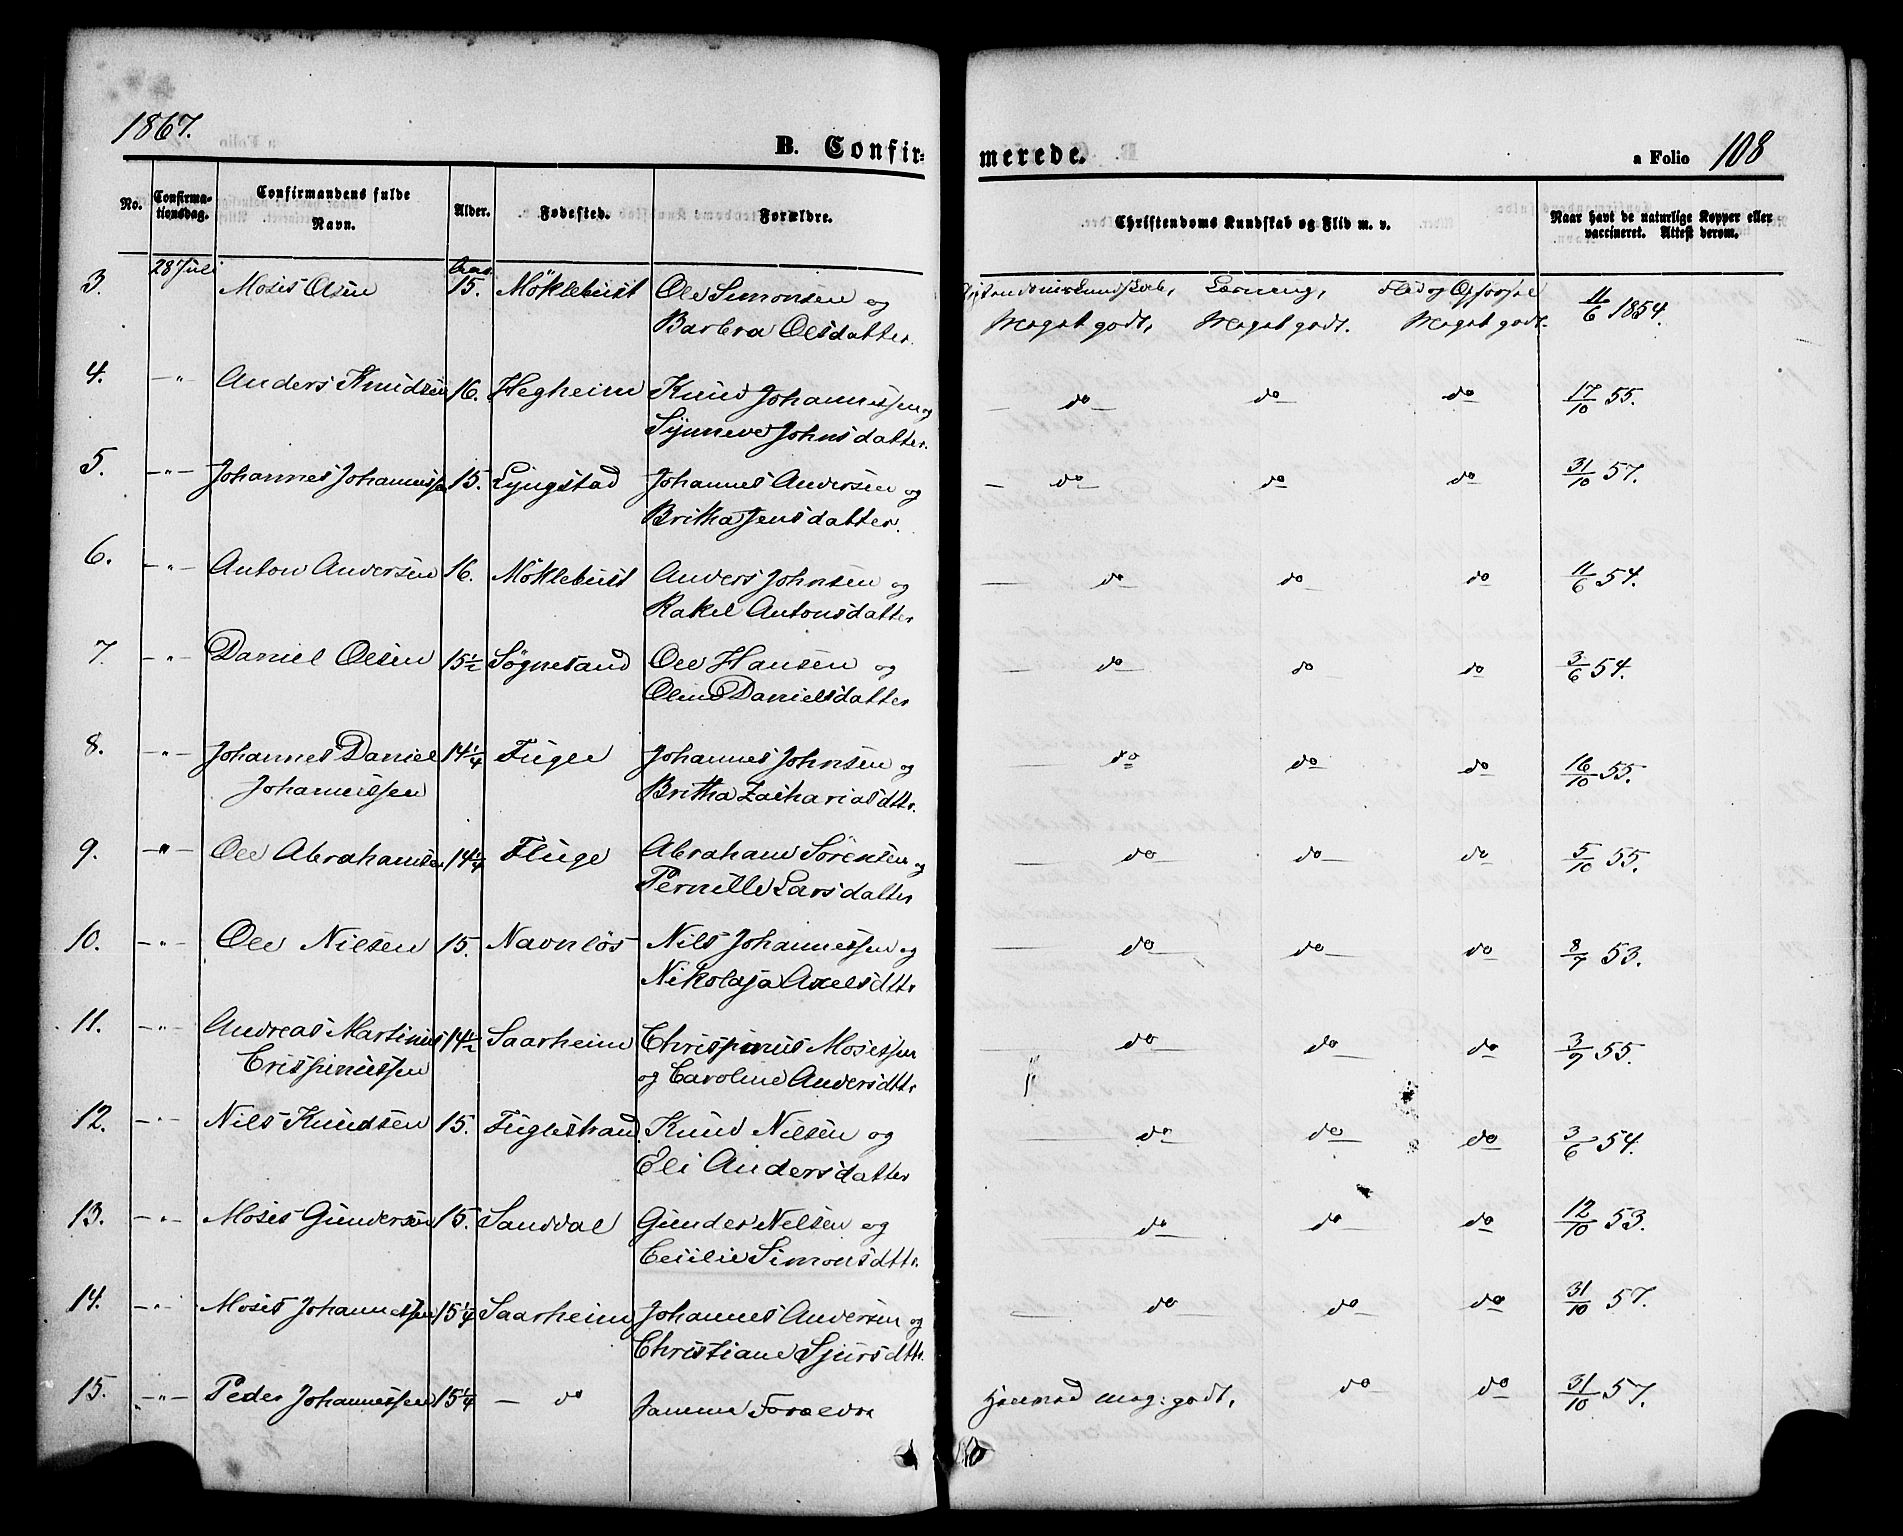 1867.
B. Confir-
merede.
a Folio 108
No. Confirma-tionsdag. Confirmandens fulde Navn. Alder. Fødested. Forældre. Christendoms Kundskab og Flid m. v. Naar havt de naturlige Kopper eller vaccineret. Attest derom.
3. 28 Juli Moses Olsen Aar 15. Möklebust Ole Simonsen og Lærneng, Flid og Opførsel 11/6 1854.
Barbra Olsdatter. Meget godt, Meget godt. Meget godt.
4. -"- Anders Knudsen 16. Hegheim Knud Johannessen og do do do 17/10 55.
Synneve Johnsdatter.
5. -"- Johannes Johannessen 15. Lyngstad Johannes Andersen og do do do 31/10 57.
Britha Jensdatter.
6. -"- Anton Andersen 16. Möklebust Anders Johnsen og do do do 11/6 54.
Rakel Antonsdatter
7. -"- Daniel Olsen 15 1/2 Søgnesand Ole Hansen og do do do 3/6 54.
Oline Danielsdatter
8. -"- Johannes Daniel 14 1/4 Fugle Johannes Johnsen og do do do 16/10 55.
Johannessen Britha Zachariasdttr.
9. -"- Ole Abrahamsen 14 1/4 Fluge Abraham Sørensen og do do do 5/10 55.
Pernille Larsdatter
10. -"- Ole Nilsen 15. Navnløs Nils Johannessen og do do do 8/7 53.
Nikolaja Axelsdttr
11. -"- Andreas Martinus 14 1/2 Saarheim Chrispinus Mosessen do do do 3/9 55.
Crispinussen og Caroline Andersdttr
12. -"- Nils Knudsen 15. Fuglestrand Knud Nilsen og do do do 3/6 54.
Eli Andersdatter
13. -"- Moses Gundersen 15. Sanddal Gunder Nilsen og do do do 12/10 53.
Cecilie Simonsdttr.
14. -"- Moses Johannessen 15 1/4 Saarheim Johannes Andersen og do do do 31/10 57.
Christiane Sjursdttr.
15. -"- Peder Johannessen 15 1/4 - do Samme Forældre mog: godt. do do 31/10 57.